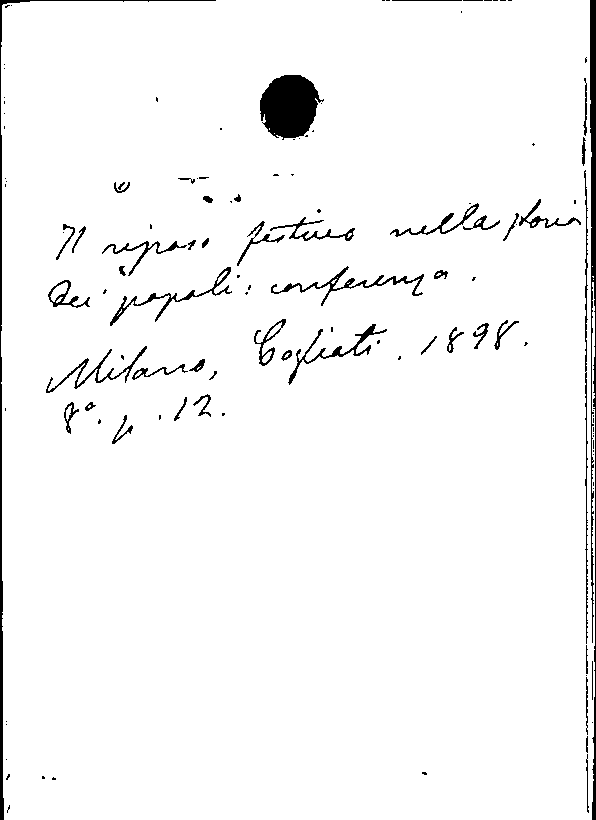 Il riposo festivo nella storia
dei popoli: conferenza.
Milano, Cogliati. 1898.
8°. p. 12.